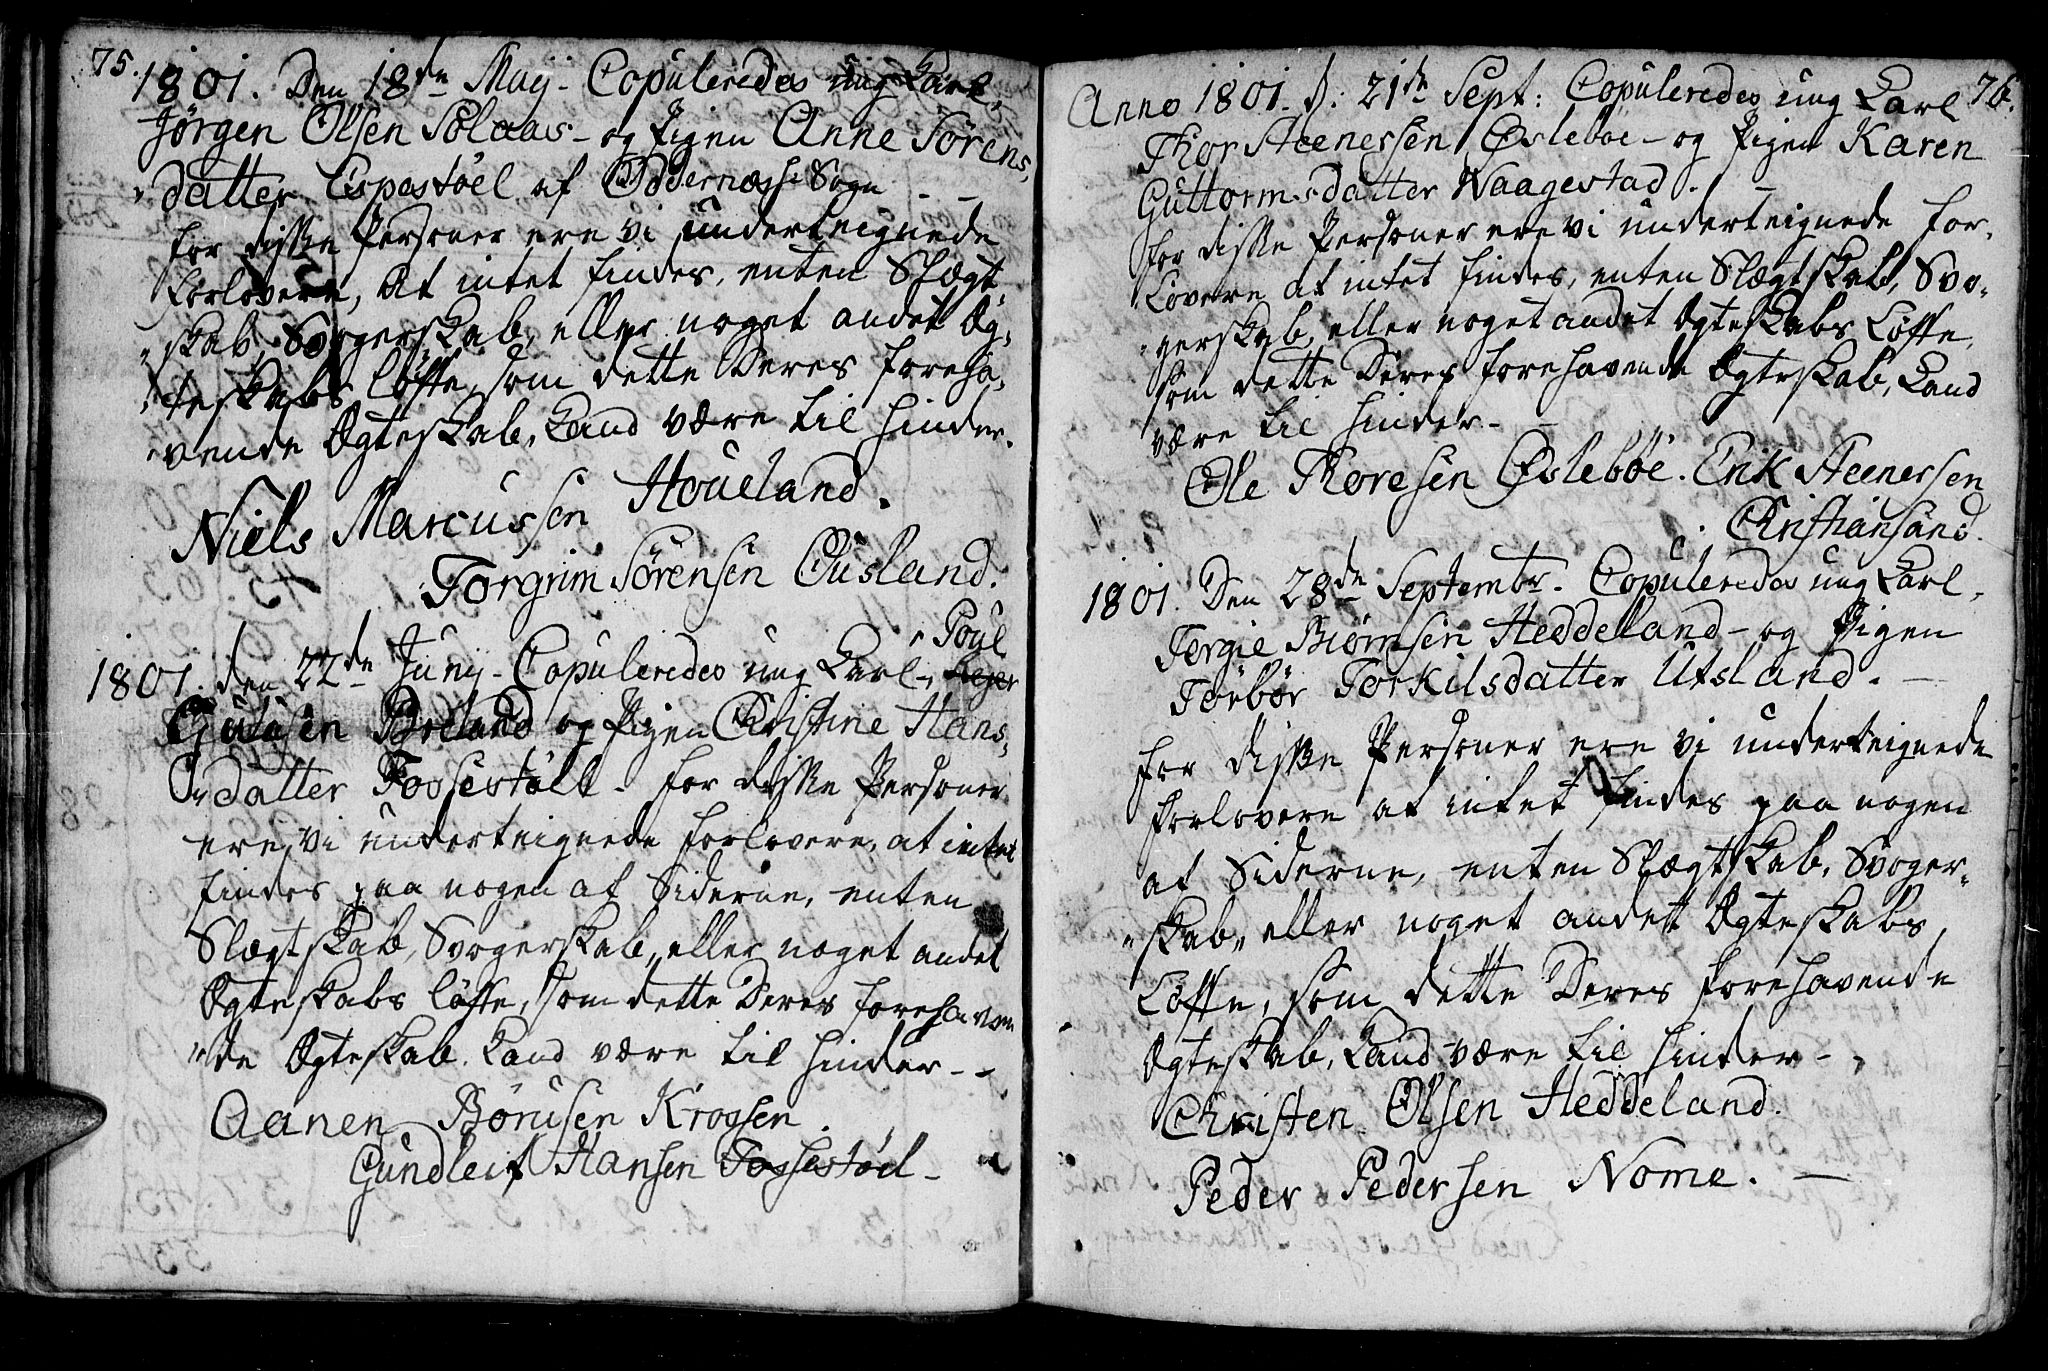 75.
1801. Den 18de Maij - Copuleredes ung Karl,
Jørgen Olsen Solaas - og Pigen Anne Sørens,
datter Espestøel af Oddernæss Sogn - -
for disse Personer ere vi underteignede
forlovere, at intet findes, enten Slægt
skab, Svogerskab, eller noget andet Æg,
teskabs løfte, som dette Deres foreha,
vende Ægteskab, kand være til hinder.
Niels Marcussen Houeland.
Torgrim Sørensen Ousland.
1801. den 22de Junij - Copuleredes ung Karl - Poul
Gulusen Breland og Pigen Christine Hans,
datter Fossestøll - for disse Personer
ere vi underteignede forlovere, at intet
findes paa nogen af Siderne, enten
Slægtskab, Svogerskab, eller noget andet
Ægteskabs løfte, som dette Deres forehaven
de Ægteskab kand være til hinder - -
Aanen Børusen Krogsen.
Gundleif Hansen Fossestøel -
76.
Anno 1801. d. 21de Sept: Copuleredes ung Karl
Thor Steenersen Øslebøe - og Pigen Karen
Guttormsdatter Waagestad. -
for disse Personer ere vi underteignede for,
lovere at intet findes, enten Slægtskab, Svo,
gerskab, eller noget andet Ægteskabs Løfte,
som dette Deres forehavende Ægteskab, kand
være til hinder - -
Ole Thoresen Øslebøe. Erik Steenersen
Christiansand.
1801. Den 28de Septembr. Copuleredes ung Karl,
Tergie Biørnsen Heddeland - og Pigen
Torbør Torkilsdatter Utsland. -
for disse Personer ere vi underteignede
forlovere at intet findes paa nogen
af Siderne, enten Slægtskab, Svoger,
skab, eller noget andet Ægteskabs,
Løfte, som dette Deres forehavende
Ægteskab, kand være til hinder - ,
Christen Olsen Heddeland.
Peder Pedersen Nome. -